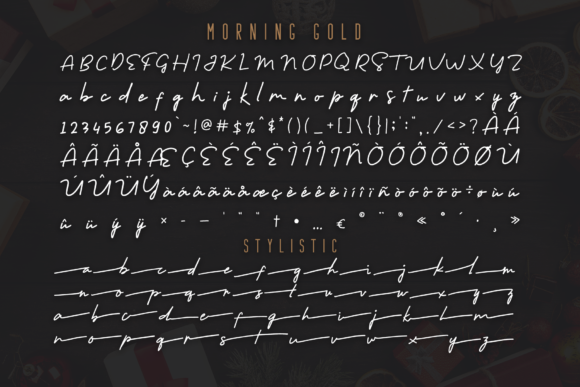 MORNING GOLD
ABCDEFGHIJKLMNOPQRSTUVWXYZ
abcdefghijklmnopqrstuvwxyz
1234567890`~!@#$%^&*()(_+[]\{}|;':",./<>?ÀÁ
ÂÃÄÅÆÇÈÉÊËÌÍÎÏÑÒÓÔÕÖØÙ
ÚÛÜÝàáâãäåæçèéêëìíîïñòóôõö÷øùú
ûüýÿ×-–—'"‘’“”†•…€°¨®«º´·¸»
STYLISTIC
abcdefghijklm
nopqrstuvwxyz
abcdefghijklm
nopqrstuvwxyz